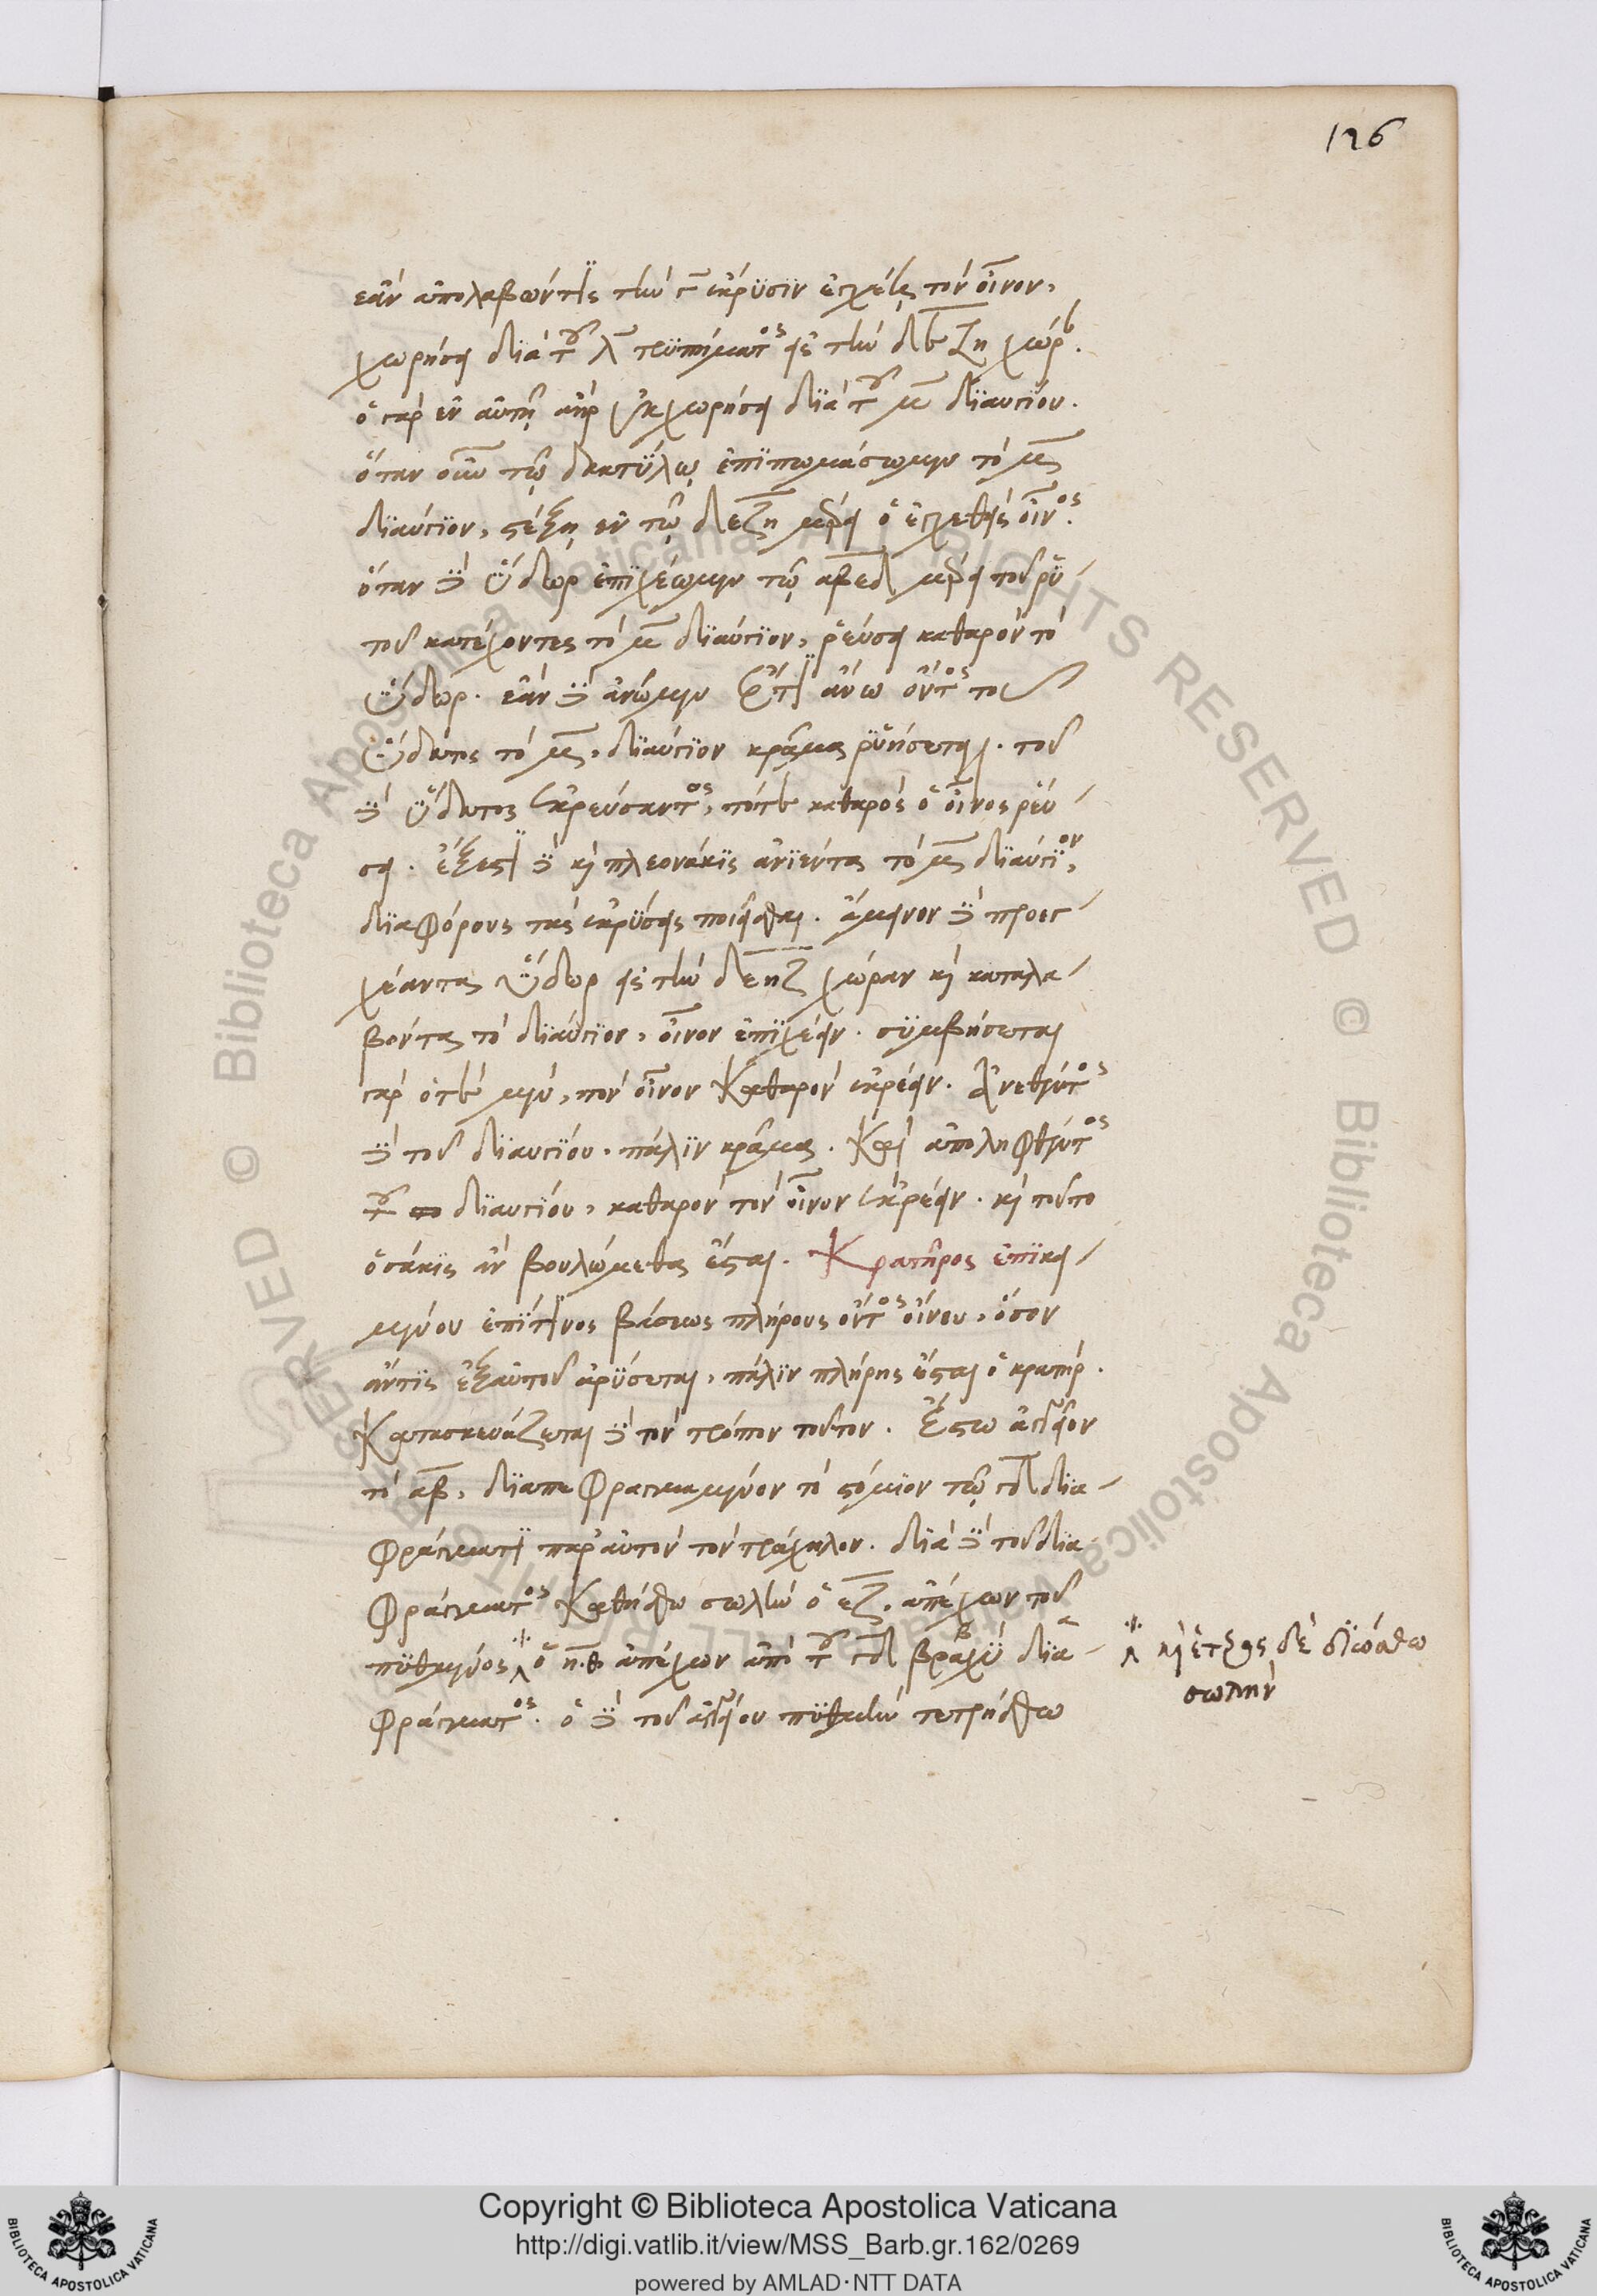 126
ἐὰν ἀπολαβόντες τὴν Γ ἔκρυσιν ἐγχέῃς τὸν οἶνον,
χωρήσει διὰ τοῦ Λ τρυπήματος εἰς τὴν ΔΕΖΗ χώραν.
ὁ γὰρ ἐν αὐτῇ ἀὴρ ἐκχωρήσει διὰ τοῦ Μ διαυγίου.
ὅταν οὖν τῷ δακτύλῳ ἐπιπωμάσωμεν τὸ Μ
διαύγιον, στέξῃ ἐν τῷ ΔΕΖΗ μέρει ὁ ἐγχεθεὶς οἶνος.
ὅταν δὲ ὕδωρ ἐπιχέωμεν τῷ ΑΒΕΔ μέρει τοῦ ῥυ-
τοῦ κατέχοντες τὸ Μ διαύγιον, ῥεύσει καθαρὸν τὸ
ὕδωρ. ἐὰν δὲ ἀνῶμεν ἔτι ἄνω ὄντος τοῦ
ὕδατος τὸ Μ, διαύγιον κρᾶμα ῥυήσεται. τοῦ
δὲ ὕδατος ἐκρεύσαντος, τότε καθαρὸς ὁ οἶνος ῥεύ-
σει. ἔξεστι δὲ καὶ πλεονάκις ἀνιέντα τὸ Μ διαύγιον,
διαφόρους τὰς ἐκρύσεις ποιεῖσθαι. ἄμεινον δὲ προεγ-
χέαντα ὕδωρ εἰς τὴν ΔΕΗΖ χώραν καὶ καταλα-
βόντα τὸ διαύγιον, οἶνον ἐπιχέειν. συμβήσεται
γὰρ ὁτὲ μὲν, τὸν οἶνον καθαρὸν ἐκρέειν. Ἀνεθέντος
δὲ τοῦ διαυγίου. πάλιν κρᾶμα. Καὶ ἀποληφθέντος
τοῦ διαυγίου, καθαρὸν τὸν οἶνον ἐκρέειν. καὶ τοῦτο
ὁσάκις ἂν βουλώμεθα ἔσται. Κρατῆρος ἐπικει-
μένου ἐπί τινος βάσεως πλήρους ὄντος οἴνου, ὅσον
ἄν τις ἐξ αὐτοῦ ἀρύσεται, πάλιν πλήρης ἔσται ὁ κρατήρ.
Κατασκευάζεται δὲ τὸν τρόπον τοῦτον. Ἔστω ἀγγεῖον
τὸ ΑΒ, διαπεφραγμένον τὸ στόμιον τῷ ΓΔ δια-
φράγματι παρ' αὐτὸν τὸν τράχηλον. διὰ δὲ τοῦ δια-
φράγματος καθήσθω σωλὴν ὁ ΕΖ, ἀπέχων τοῦ
πυθμένος ὁ ΗΘ ἀπέχων ἀπὸ τοῦ ΓΔ βραχὺ δια-
φράγματος. ὁ δὲ τοῦ ἀγγείου πυθμὴν τετρήσθω
καὶ ἕτερος δὲ διώσθω
σωλὴν
Copyright © Biblioteca Apostolica Vaticana
http://digi.vatlib.it/view/MSS_Barb.gr.162/0269
powered by AMLAD·NTT DATA